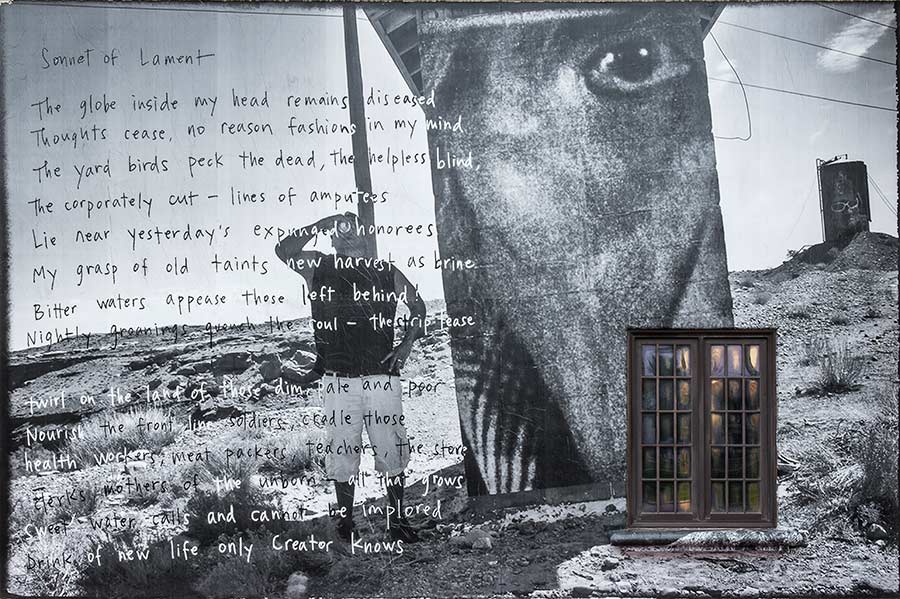 Sonnet of Lament
The globe inside my head remains diseased
Thoughts cease, no reason fashions in my mind
The yard birds peck the dead, the helpless blind,
The corporately cut - lines of amputees
Lie near yesterday's expunged honorees
My grasp of old taints new harvest as brine
Bitter waters appease those left behind!
Nightly groanings quench the soul - the strip tease
twirl on the land of those dim, pale and poor
Nourish the front line soldiers, cradle those
health workers, meat packers, teachers, the store
clerks, mothers of the unborn - all that grows
Sweet water calls and cannot be implored
Drink of new life only Creator knows